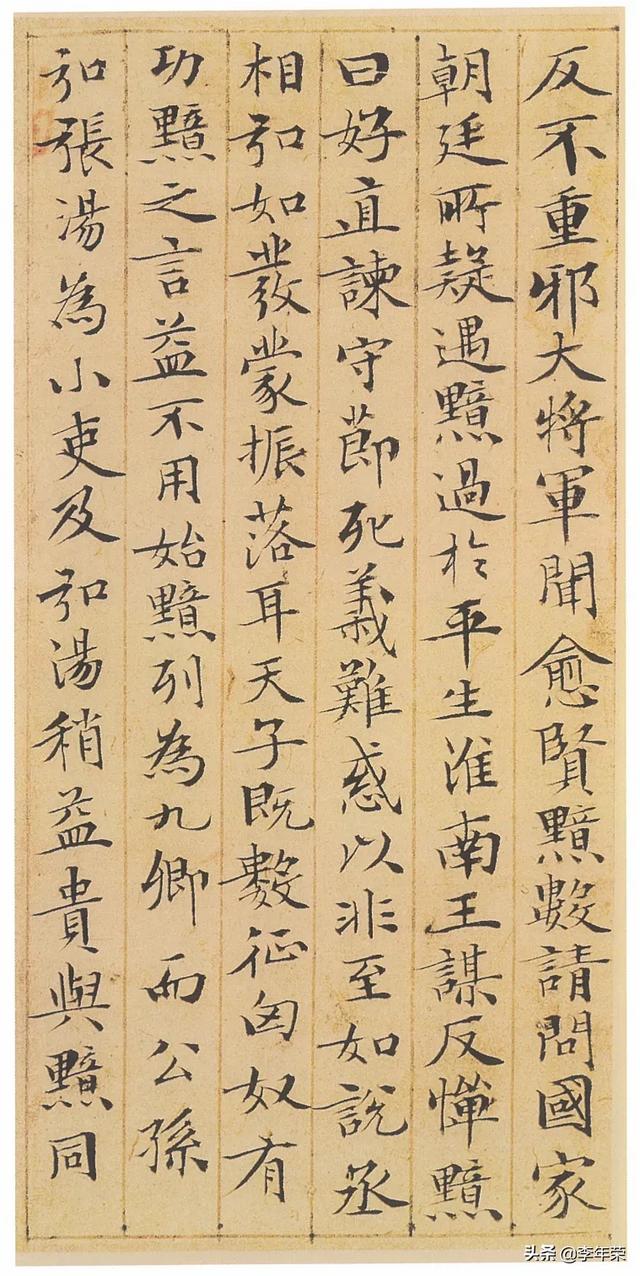 反不重邪大將軍聞愈賢黯數請問國家
朝廷所疑遇黯過於平生淮南王謀反憚黯
曰好直諫守節死義難惑以非至如說丞
相弘如發蒙振落耳天子既數征匈奴有
功黯之言益不用始黯列為九卿而公孫
弘張湯為小吏及弘湯稍益貴與黯同
头条 @李年荣